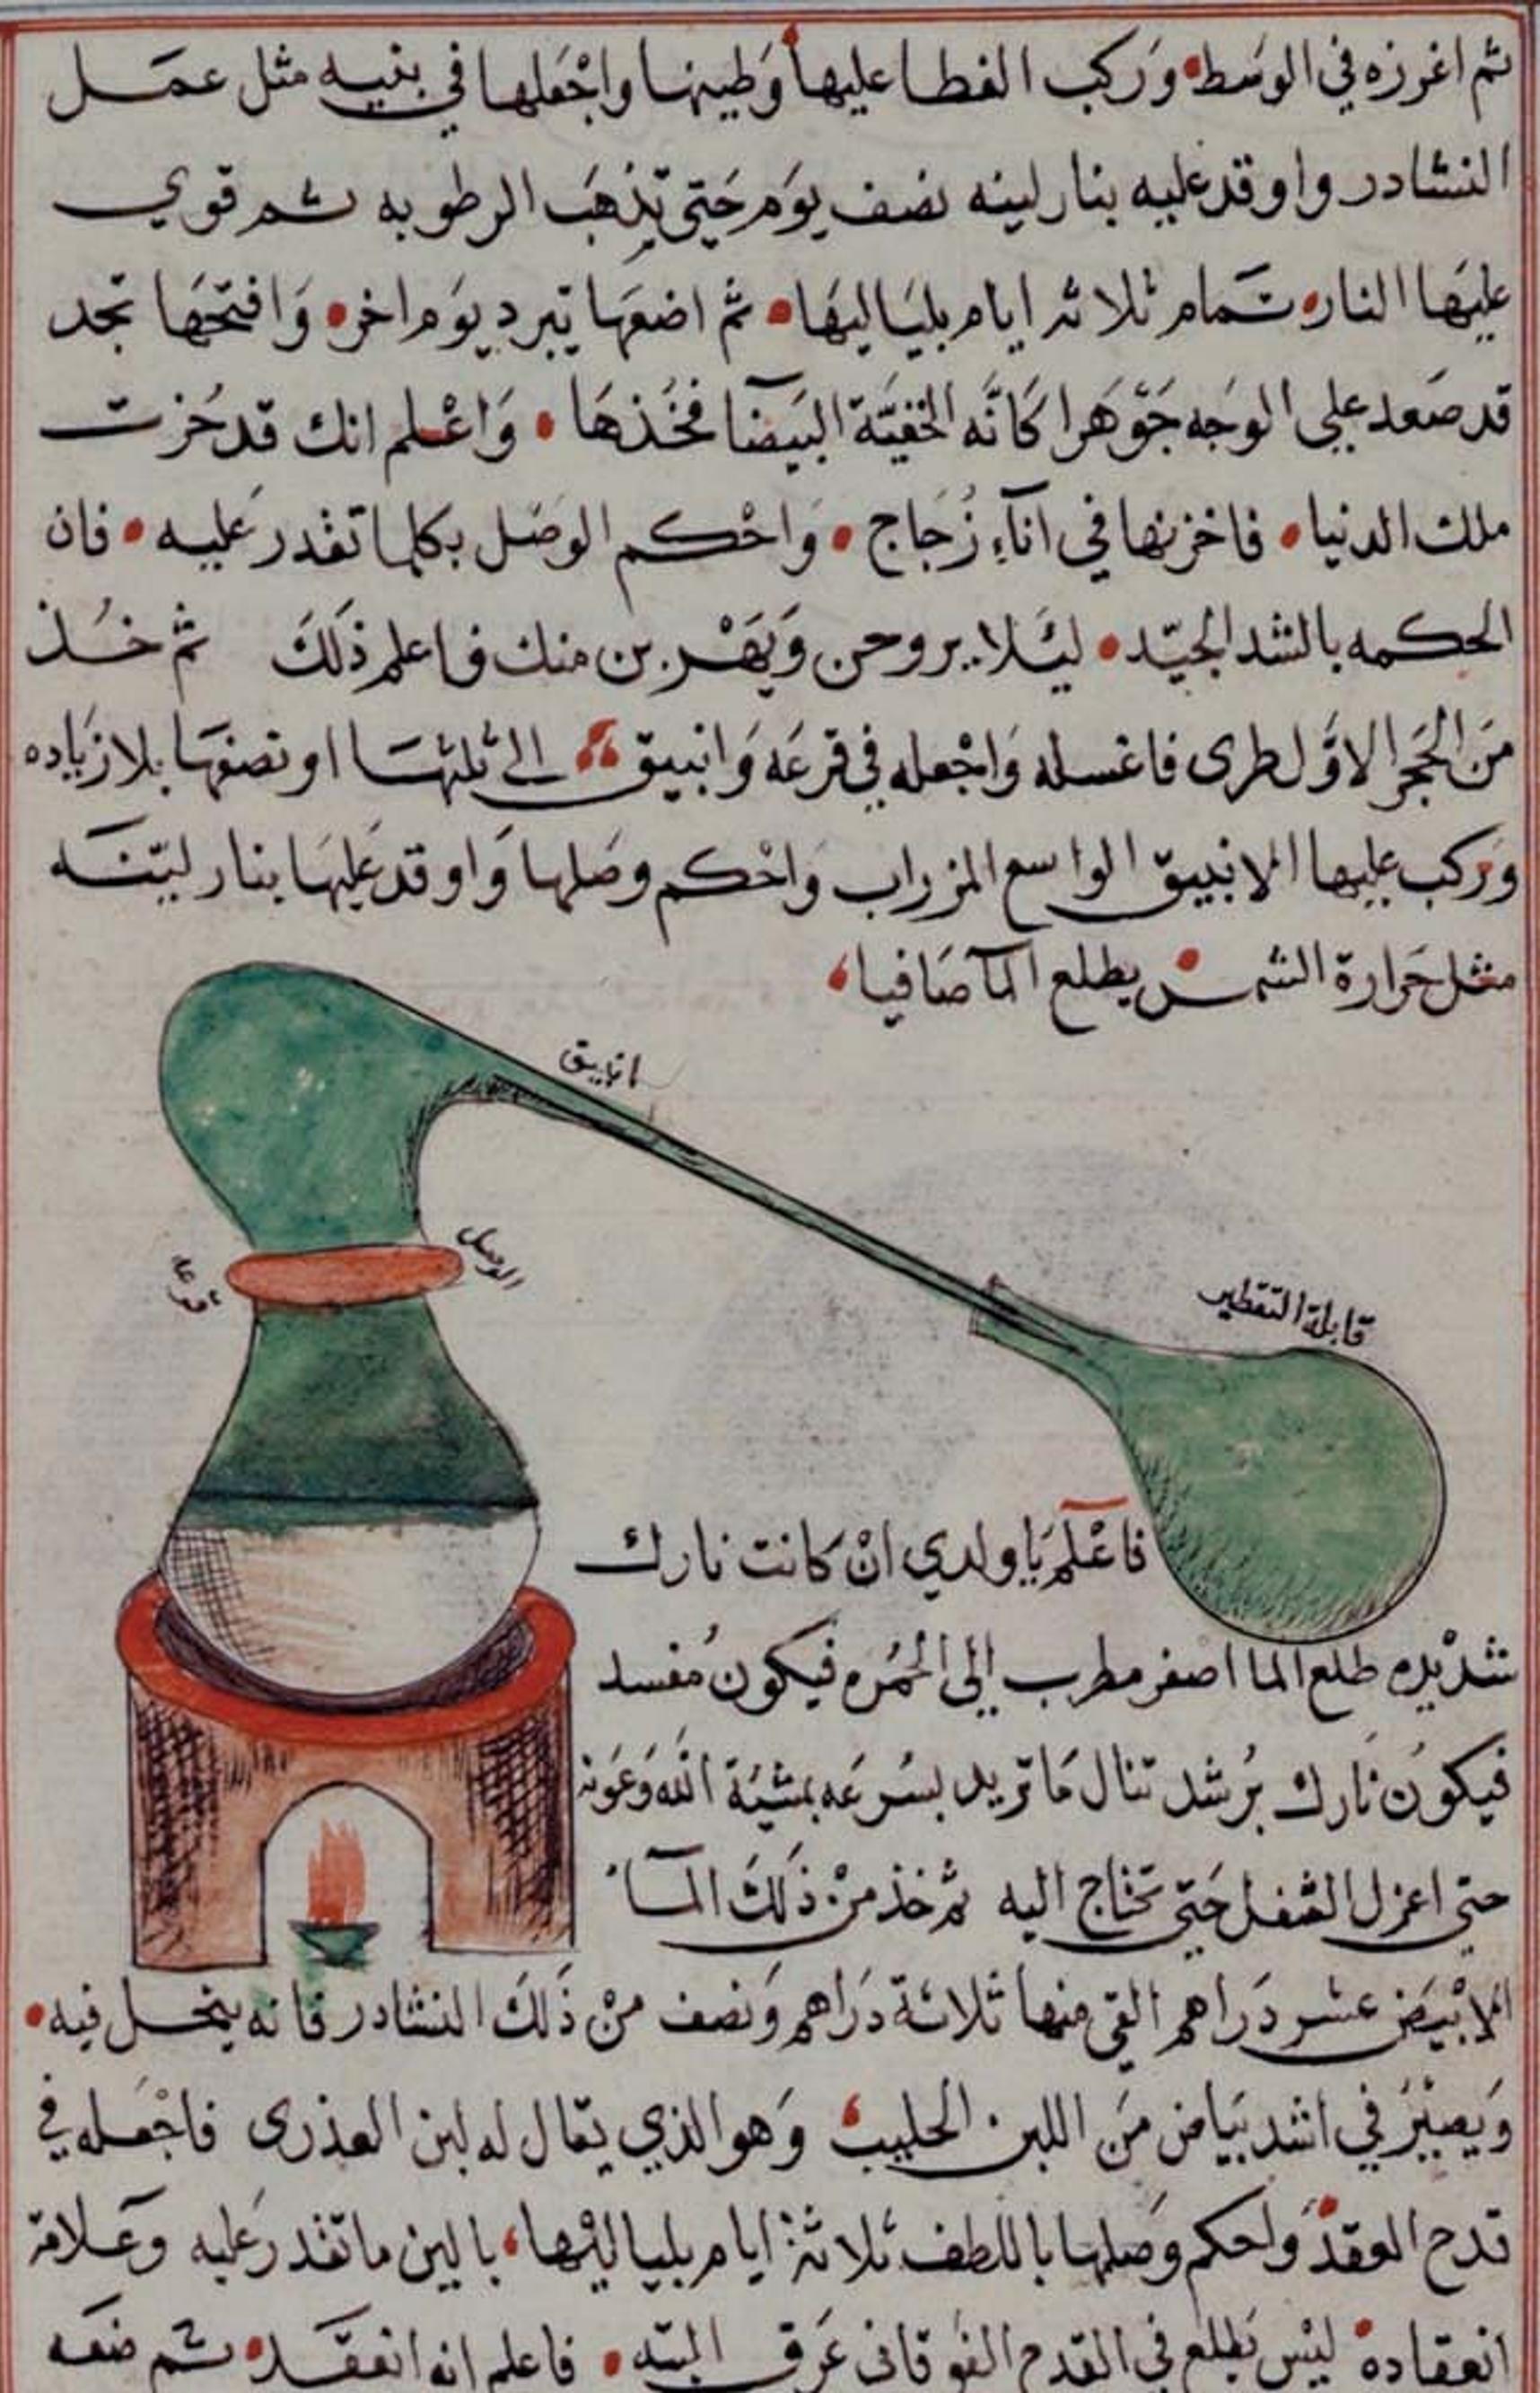 ثم اغرزه في الوسط وركب الغطا عليها وطينها واجعلها في بنيه مثل عمل
النشادر واوقد عليه بنار لينه نصف يوم حتى تذهب الرطوبه ثم قوي
عليها النار تمام ثلاثه ايام بلياليها ثم اضعها تبرد يوم اخر وافتحها تجد
قد صعد على الوجه جوهرا كانه الخفيّة البيضا فخذها واعلم انك قد حزت
ملك الدنيا فاخزنها في انآء زجاج واحكم الوصل بكلما تقدر عليه فان
الحكمه بالشد الجيّد ليئلا يروحن ويهربن منك فاعلم ذلك ثم خذ
من الحجر الاوّل طرى فاغسله واجعله في قرعه وانبيق الى ثلثها او نصفها بلا زياده
وركب عليها الانبيق الواسع المزراب واحكم وصلها واوقد عليها بنار ليّنه
مثل حرارة الشمس يطلع المآ صافيا
انبيق
الوصل
قرعة
قابلة التقطير
فاعلم يا ولدي ان كانت نارك
شديده طلع الما اصفر مطرب الى الحمره فيكون مفسد
فيكون نارك برشد تنال ما تريد بسرعه بمشيّة الله وعونه
حتى اعزل الثفل حتى تحتاج اليه ثم خذ من ذلك المآ
الابيض عشر دراهم القي منها ثلاثة دراهم ونصف من ذلك النشادر فانه ينحل فيه
ويصير في اشد بياض من اللبن الحليب وهو الذي يقال له لبن العذرى فاجعله في
قدح العقد ولحكم وصلها باللطف ثلاثة ايام بلياليها بالين ما تقدر عليه وعلامة
انعقاده ليس يطلع في القدح الفوقانى عرق البته فاعلم انه انعقد ثم ضعه